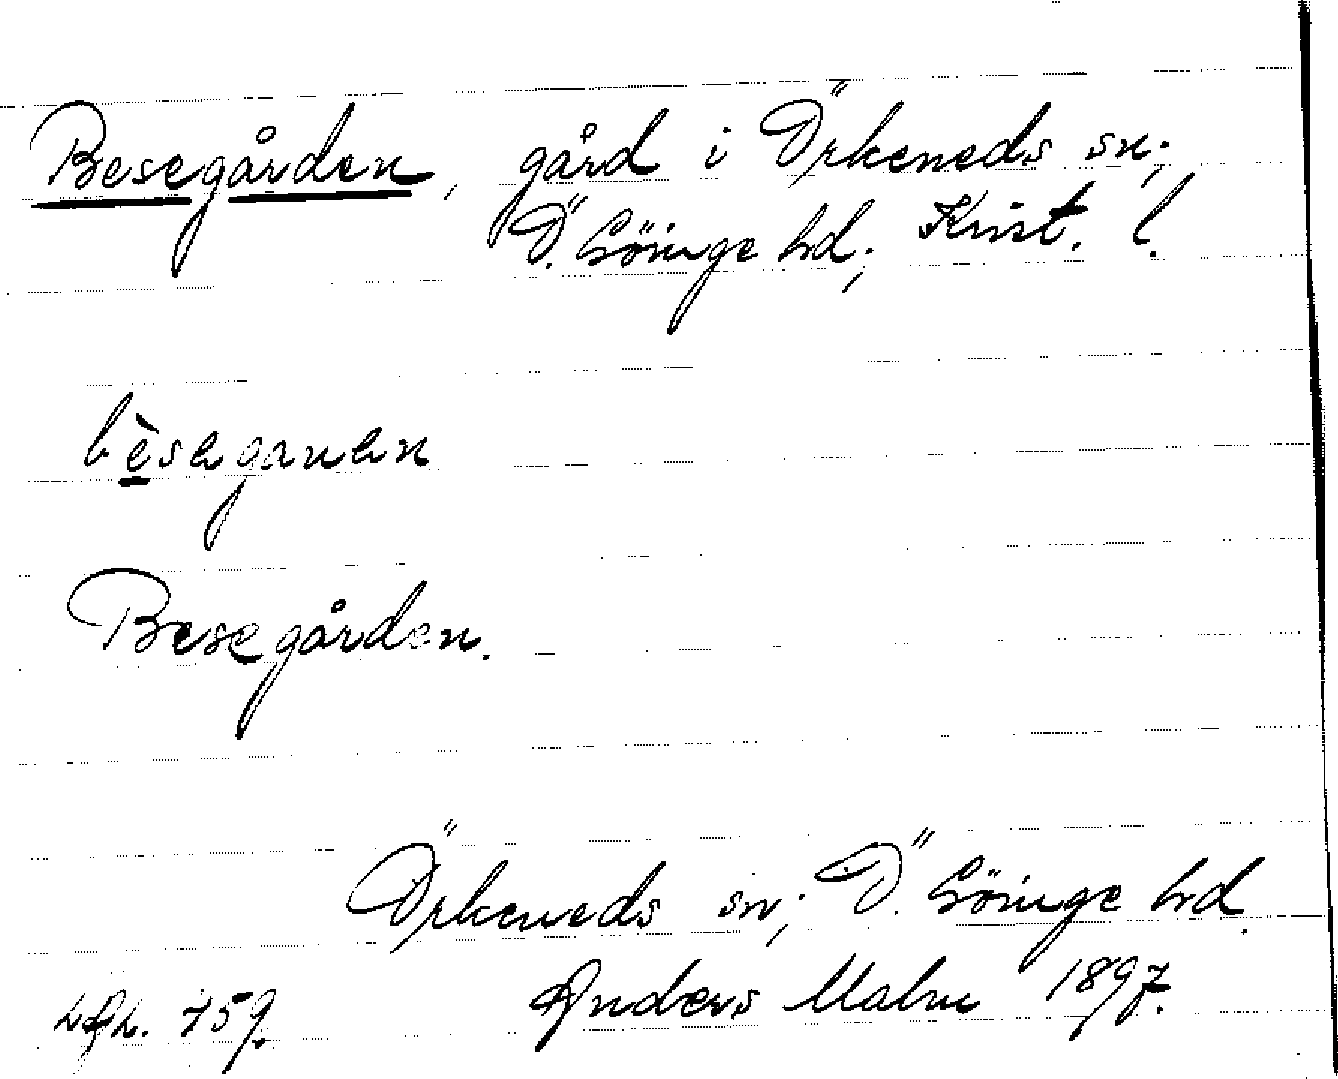 Besegården, gård i Örkeneds sn;
Ö. Göinge hd; Krist. l.
bèsaganan
Besegården.
Örkeneds sn; Ö. Göinge hd.
Anders Malm 1897.
759.